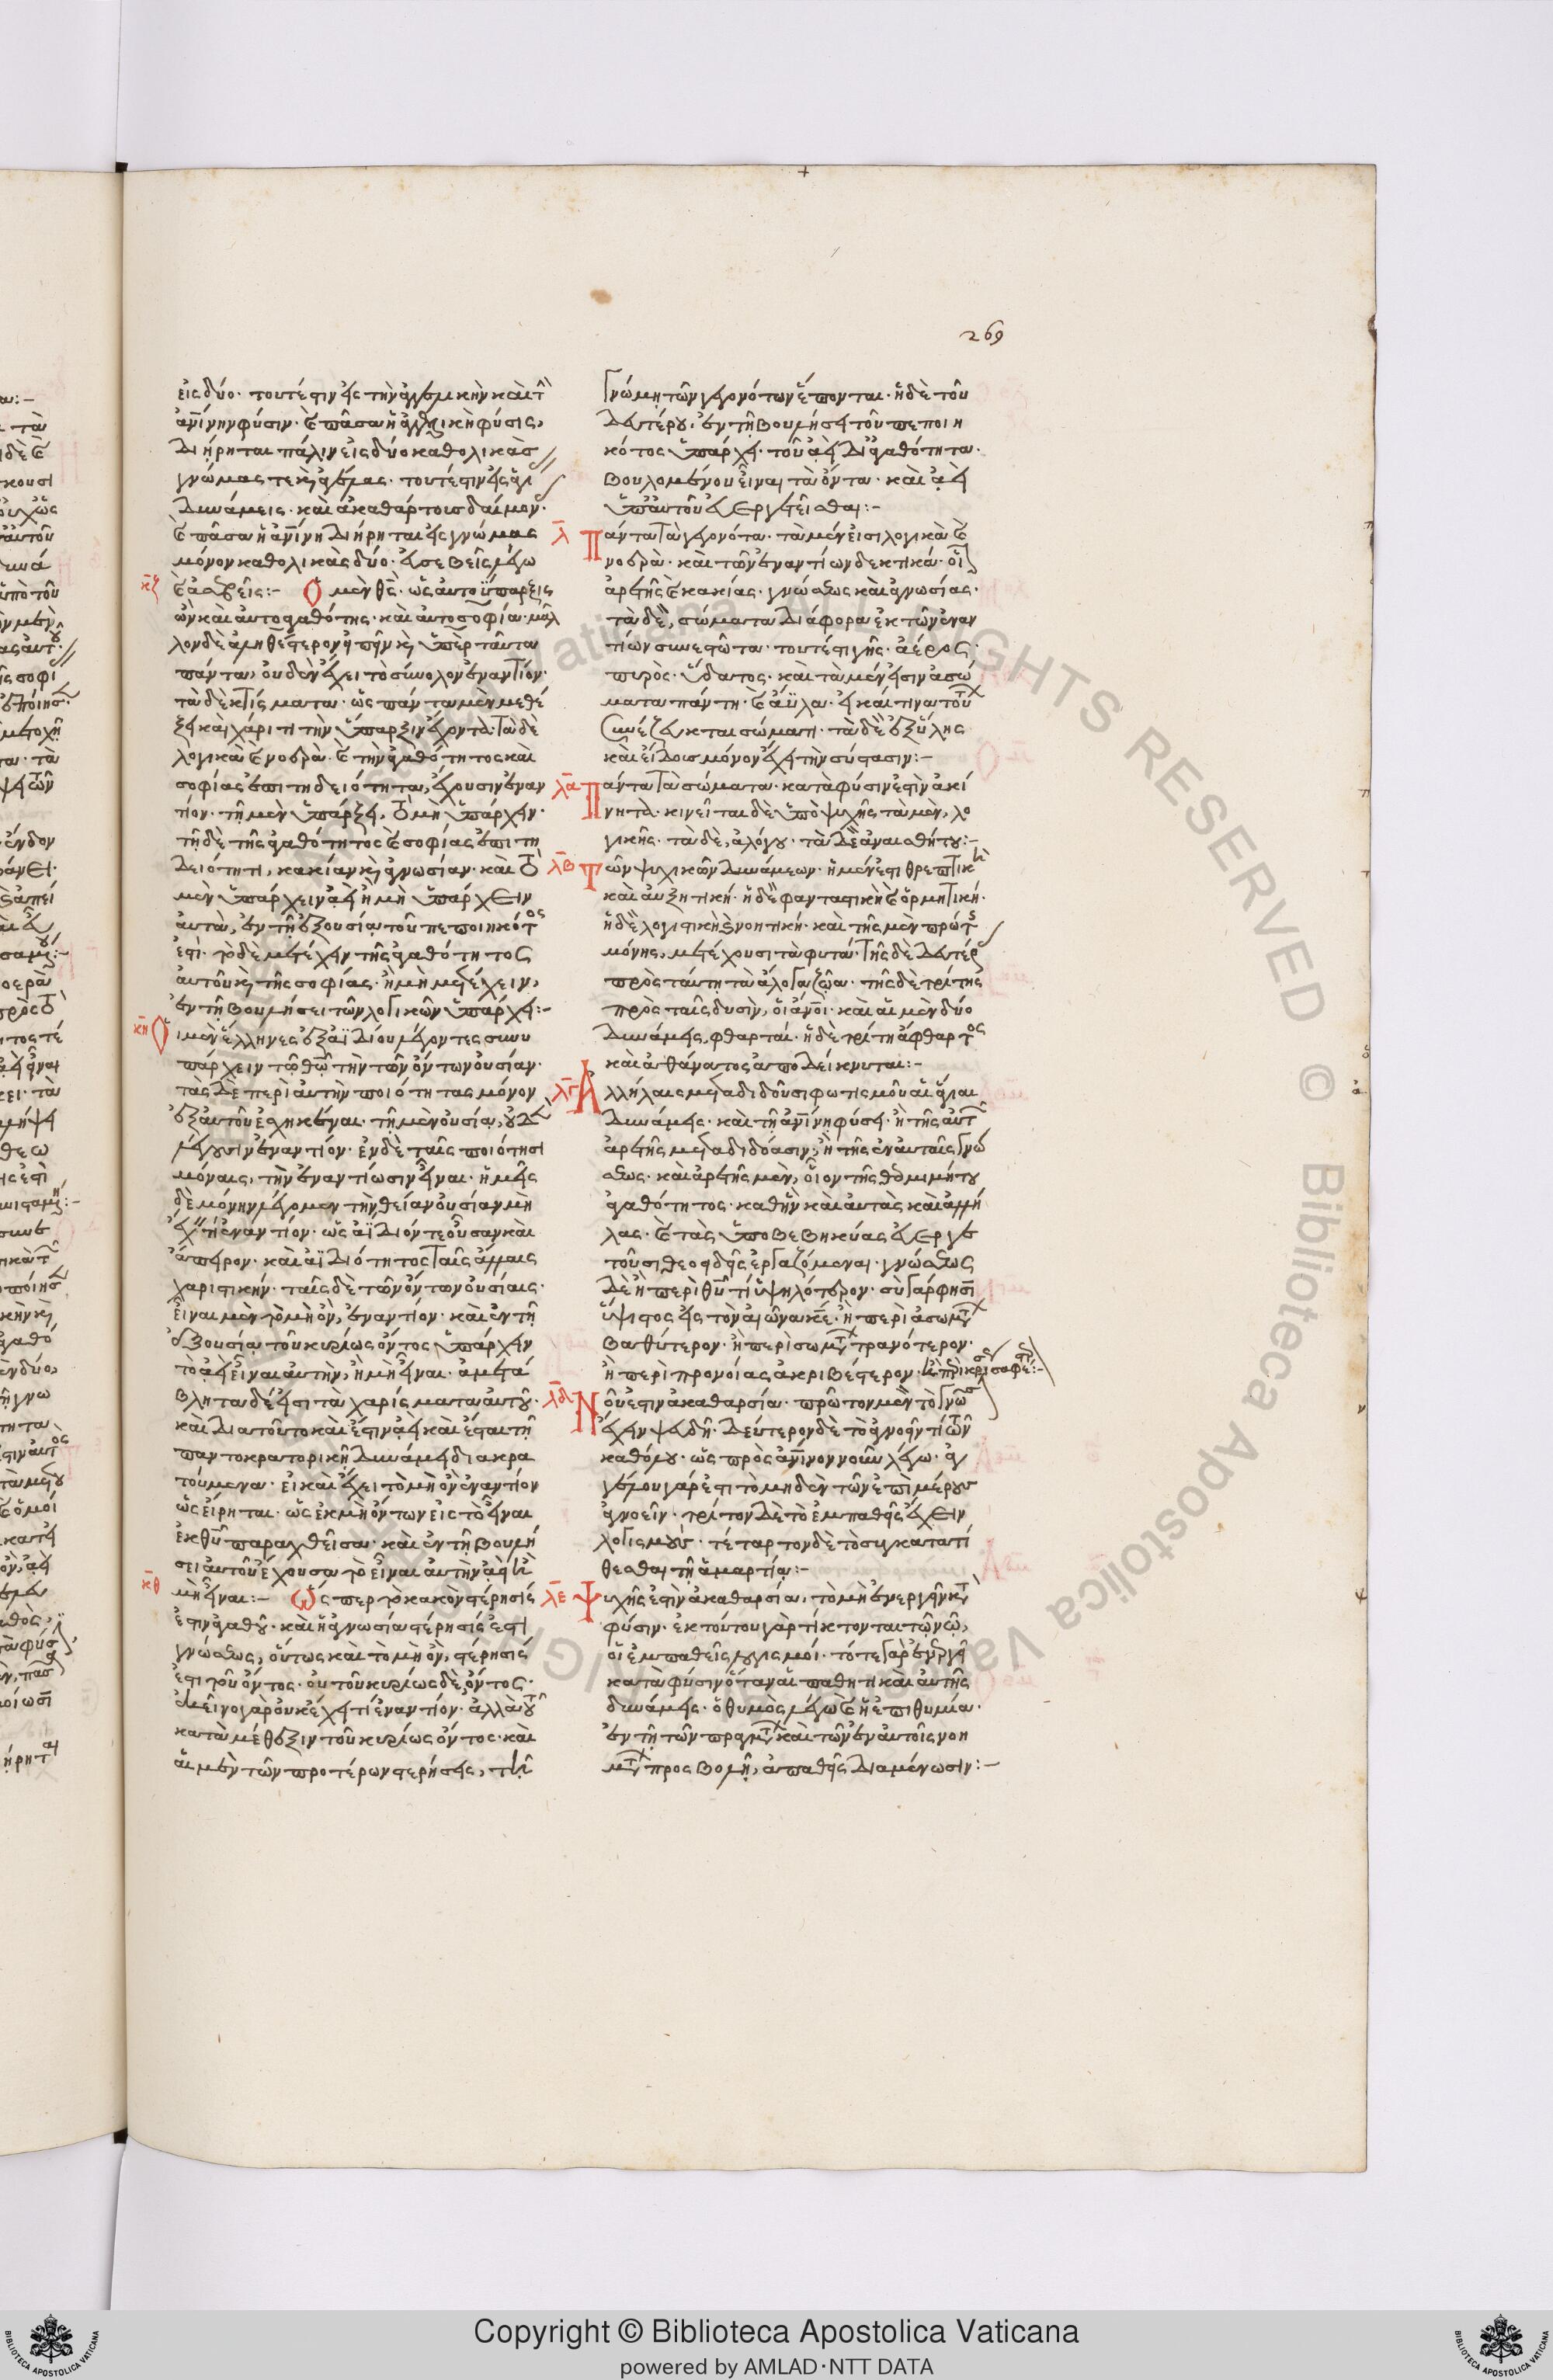 269
εἰς δύο· τουτέστιν εἰς τὴν ἀγγελικὴν καὶ τ̑
ἀν̅ίνην φύσιν· καὶ πᾶσα ἡ ἀγγελικὴ φύσις,
διήρηται πάλιν εἰς δύο καθολικὰς
γνώμας τε καὶ ἀγέλας· τουτέστιν εἰς ἁγί
δυνάμεις· καὶ ἀκαθάρτους δαίμον·
καὶ πᾶσα ἡ ἀν̅ίνη διήρηται εἰς γνώμας
μόνον καθολικὰς δύο· εὐσεβεῖς λέγω
κ̅ζ καὶ ἀσεβεῖς:– Ὁ μὲν θ̅ς· ὡς αὐτοΰπαρξις
ὢν καὶ αὐτοαγαθότης· καὶ αὐτοσοφία· μᾶλ
λον δὲ ἀληθέστερον εἰπεῖν καὶ ὑπὲρ ταῦτα
πάντα, οὐδὲν ἔχει τὸ σύνολον ἐναντίον·
τὰ δὲ κτίσματα· ὡς πάντα μὲν μεθέ
ξει καὶ χάριτι τὴν ὕπαρξιν ἔχοντα· τὰ δὲ
λογικὰ καὶ νοερὰ· καὶ τὴν ἀγαθότητος καὶ
σοφίας ἐπιτηδειότητα, ἔχουσιν ἐναν
τίον· τῆ μὲν ὑπάρξει, τὸ μὴ ὑπάρχειν·
τῆ δὲ τῆς ἀγαθότητος καὶ σοφίας ἐπιτη
δειότητι, κακίαν καὶ ἀγνωσίαν· καὶ τὸ
μὲν ὑπάρχειν ἀεὶ ἢ μὴ ὑπάρχειν
αὐτὰ, ἐν τῆ ἐξουσία τοῦ πεποιηκότος
ἐστι· τὸ δὲ μετέχειν τῆς ἀγαθότητος
αὐτοῦ καὶ τῆς σοφίας· ἢ μὴ μετέχειν,
ἐν τῆ βουλήσει τῶν λογικῶν ὑπάρχει:–
κ̅η Οἱ μὲν ἕλληνες ἐξ ἀϊδίου λέγοντες συνυ
πάρχειν τῶ θῶ τὴν τῶν ὄντων οὐσίαν·
τὰς δὲ περὶ αὐτὴν ποιότητας μόνον
ἐξ αὐτοῦ ἐσχηκέναι· τῆ μὲν οὐσία, οὐδὲν
λέγουσιν ἐναντίον· ἐν δὲ ταῖς ποιότησι
μόναις, τὴν ἐναντίωσιν εἶναι· ἡμεῖς
δὲ μόνην λέγομεν τὴν θείαν οὐσίαν μὴ
ἔχειν τι ἐναντίον· ὡς ἀΐδιόν τε οὖσαν καὶ
ἄπειρον· καὶ ἀϊδιότητος ταῖς ἄλλαις
χαριστικήν· ταῖς δὲ τῶν ὄντων οὐσίαις·
εἶναι μὲν τὸ μὴ ὂν, ἐναντίον· καὶ ἐν τῆ
ἐξουσία τοῦ κυρίως ὄντος ὑπάρχειν
τὸ ἀεὶ εἶναι αὐτὴν, ἢ μὴ εἶναι· ἀμετά
βλητα δέ εἰσι τὰ χαρίσματα αὐτοῦ·
καὶ διατοῦτο καὶ ἔστιν ἀεὶ καὶ ἔσται τῆ
παντοκρατορικῆ δυνάμει διακρα
τούμενα· εἰ καὶ ἔχει τὸ μὴ ὂν ἐναντίον
ὡς εἴρηται· ὡς ἐκ μὴ ὄντων εἰς τὸ εἶναι
ἐκ θῦ παραχθεῖσα· καὶ ἐν τῆ βουλή
σει αὐτοῦ ἔχουσα τὸ εἶναι αὐτὴν ἀεὶ ἢ
κ̅θ μὴ εἶναι:– Ὥσπερ τὸ κακὸν στέρησίς
ἐστιν ἀγαθοῦ· καὶ ἡ ἀγνωσία στέρησίς ἐστι
γνώσεως, οὕτως καὶ τὸ μὴ ὂν, στέρησίς
ἐστι τοῦ ὄντος· οὐ τοῦ κυρίως δὲ ὄντος·
ἐκεῖνο γὰρ οὐκ ἔχει τί ἐναντίον· ἀλλὰ τοῦ
κατὰ μέθεξιν τοῦ κυρίως ὄντος· καὶ
αἱ μὲν τῶν προτέρων στερήσεις, τῆ
γνώμη τῶν γεγονότων ἕπονται· ἡ δὲ τοῦ
δευτέρου, ἐν τῆ βουλήσει τοῦ πεποιη
κότος ὑπάρχει· τοῦ ἀεὶ δι' ἀγαθότητα·
βουλομένου εἶναι τὰ ὄντα· καὶ ἀεὶ
ὑπ' αὐτοῦ εὐεργετεῖσθαι:–
λ̅ Πάντα τὰ γεγονότα· τὰ μὲν εἰσι λογικὰ καὶ
νοερὰ· καὶ τῶν ἐναντίων δεκτικά· οἷ
ἀρετῆς καὶ κακίας· γνώσεως καὶ ἀγνωσίας·
τὰ δὲ, σώματα διάφορα ἐκ τῶν ἐναν
τίων συνεστῶτα· τουτέστι γῆς· ἀέρος·
πυρὸς· ὕδατος· καὶ τὰ μέν εἰσιν ἀσώ
ματα πάντη· καὶ ἄϋλα· εἰ καί τινα τού
συνέζευκται σώματι· τὰ δὲ ἐξ ὕλης
καὶ εἴδους μόνον ἔχει τὴν σύστασιν:–
λ̅α Πάντα τὰ σώματα· κατὰ φύσιν ἐστὶν ἀκί
νητα· κινεῖται δὲ ὑπὸ ψυχῆς τὰ μὲν, λο
γικῆς· τὰ δὲ, ἀλόγου· τὰ δὲ ἀναισθήτου:–
λ̅β Τῶν ψυχικῶν δυνάμεων· ἡ μέν ἐστι θρεπτικὴ
καὶ αὐξητική· ἡ δὲ φανταστικὴ καὶ ὁρμητική·
ἡ δὲ λογιστικὴ καὶ νοητική· καὶ τῆς μὲν πρώτ
μόνης, μετέχουσι τὰ φυτά· τῆς δὲ δευτέρ
πρὸς ταύτη τὰ ἄλογα ζῶα· τῆς δὲ τρίτης
πρὸς ταῖς δυσὶν, οἱ ἀν̅οι· καὶ αἱ μὲν δύο
δυνάμεις, φθαρταί· ἡ δὲ τρίτη ἄφθαρτος
καὶ ἀθάνατος ἀποδείκνυται:–
λ̅γ Ἀλλήλαις μεταδιδοῦσι φωτισμοῦ αἱ ἅγιαι
δυνάμεις· καὶ τῆ ἀν̅ίνη φύσει· ἢ τῆς αὐτ
ἀρετῆς μεταδιδόασιν, ἢ τῆς ἐν αὐταῖς γνώ
σεως· καὶ ἀρετῆς μὲν, οἷον τῆς θεομιμήτου
ἀγαθότητος· καθ' ἣν καὶ αὐτὰς καὶ ἀλλή
λας· καὶ τὰς ὑποβεβηκυίας εὐεργε
τοῦσι θεοειδεῖς ἐργαζόμεναι· γνώσεως
δὲ ἢ περὶ θῦ τί ὑψηλότερον· σὺ γάρ φησι
ὕψιστος εἰς τὸν αἰῶνα κ̅ε· ἢ περὶ ἀσωμ
βαθύτερον· ἢ περὶ σωμ τρανότερον·
ἢ περὶ προνοίας ἀκριβέστερον· ἢ περὶ κρίσεως σαφέστερ:–
λ̅δ Νοῦ ἐστιν ἀκαθαρσία· πρῶτον μὲν τὸ γνῶσ
ἔχειν ψευδῆ· δεύτερον δὲ τὸ ἀγνοεῖν τί τῶν
καθόλου· ὡς πρὸς ἀν̅ινον νοῦν λέγω· ἀγ
γέλου γάρ ἐστι τὸ μηδὲν τῶν ἐπὶ μέρους
ἀγνοεῖν· τρίτον δὲ τὸ ἐμπαθεῖς ἔχειν
λογισμούς· τέταρτον δὲ τὸ συγκατατί
θεσθαι τῆ ἁμαρτία:–
λ̅ε Ψυχῆς ἐστὶν ἀκαθαρσία, τὸ μὴ ἐνεργεῖν κτ
φύσιν· ἐκ τούτου γὰρ τίκτονται τῶ νῶ,
οἱ ἐμπαθεῖς λογισμοί· τότε γὰρ ἐνεργεῖ
κατὰ φύσιν ὅταν αἱ παθητικαὶ αὐτῆς
δυνάμεις· ὁ θυμὸς λέγω καὶ ἡ ἐπιθυμία·
ἐν τῆ τῶν πραγμ καὶ τῶν ἐν αὐτοῖς νοη
μ προσβολῆ, ἀπαθεῖς διαμένωσιν:–
Copyright © Biblioteca Apostolica Vaticana
powered by AMLAD·NTT DATA